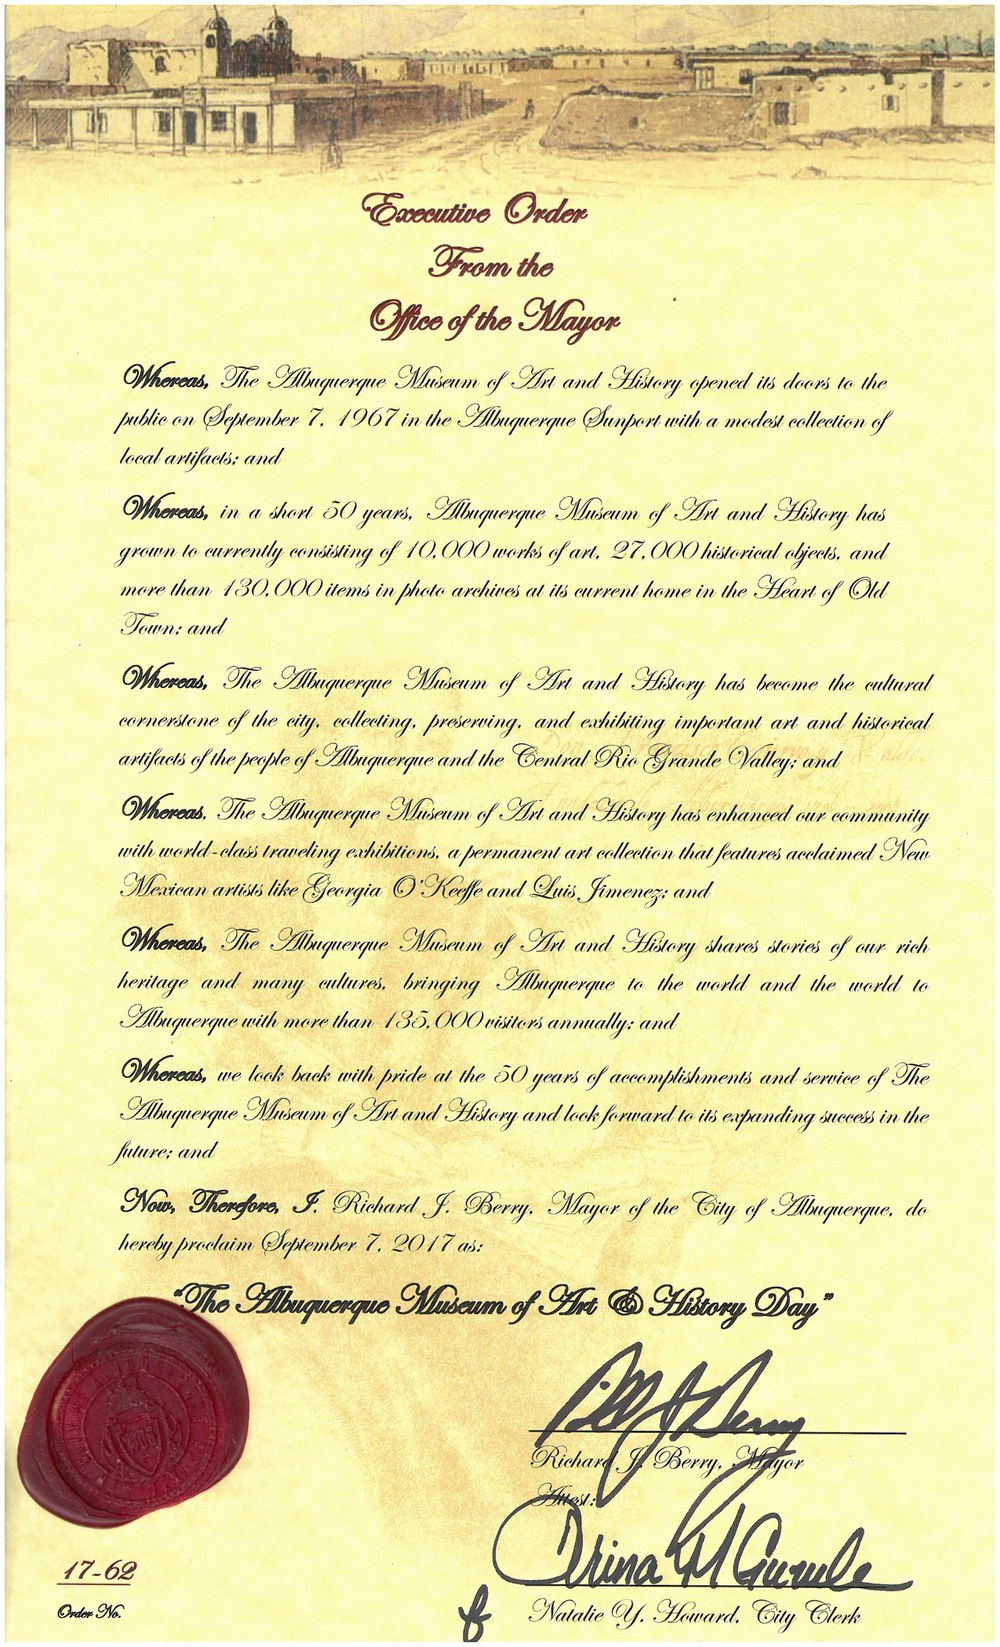 Executive Order
From the
Office of the Mayor
Whereas, The Albuquerque Museum of Art and History opened its doors to the
public on September 7, 1967 in the Albuquerque Sunport with a modest collection of
local artifacts; and
Whereas, in a short 50 years, Albuquerque Museum of Art and History has
grown to currently consisting of 10,000 works of art, 27,000 historical objects, and
more than 130,000 items in photo archives at its current home in the Heart of Old
Town; and
Whereas, The Albuquerque Museum of Art and History has become the cultural
cornerstone of the city, collecting, preserving, and exhibiting important art and historical
artifacts of the people of Albuquerque and the Central Rio Grande Valley; and
Whereas, The Albuquerque Museum of Art and History has enhanced our community
with world-class traveling exhibitions, a permanent art collection that features acclaimed New
Mexican artists like Georgia O'Keeffe and Luis Jimenez; and
Whereas, The Albuquerque Museum of Art and History shares stories of our rich
heritage and many cultures, bringing Albuquerque to the world and the world to
Albuquerque with more than 135,000 visitors annually; and
Whereas, we look back with pride at the 50 years of accomplishments and service of The
Albuquerque Museum of Art and History and look forward to its expanding success in the
future; and
Now, Therefore, I, Richard J. Berry, Mayor of the City of Albuquerque, do
hereby proclaim September 7, 2017 as:
"The Albuquerque Museum of Art & History Day"
Richard J. Berry, Mayor
Attest:
Trina M Gurule
Natalie Y. Howard, City Clerk
17-62
Order No.